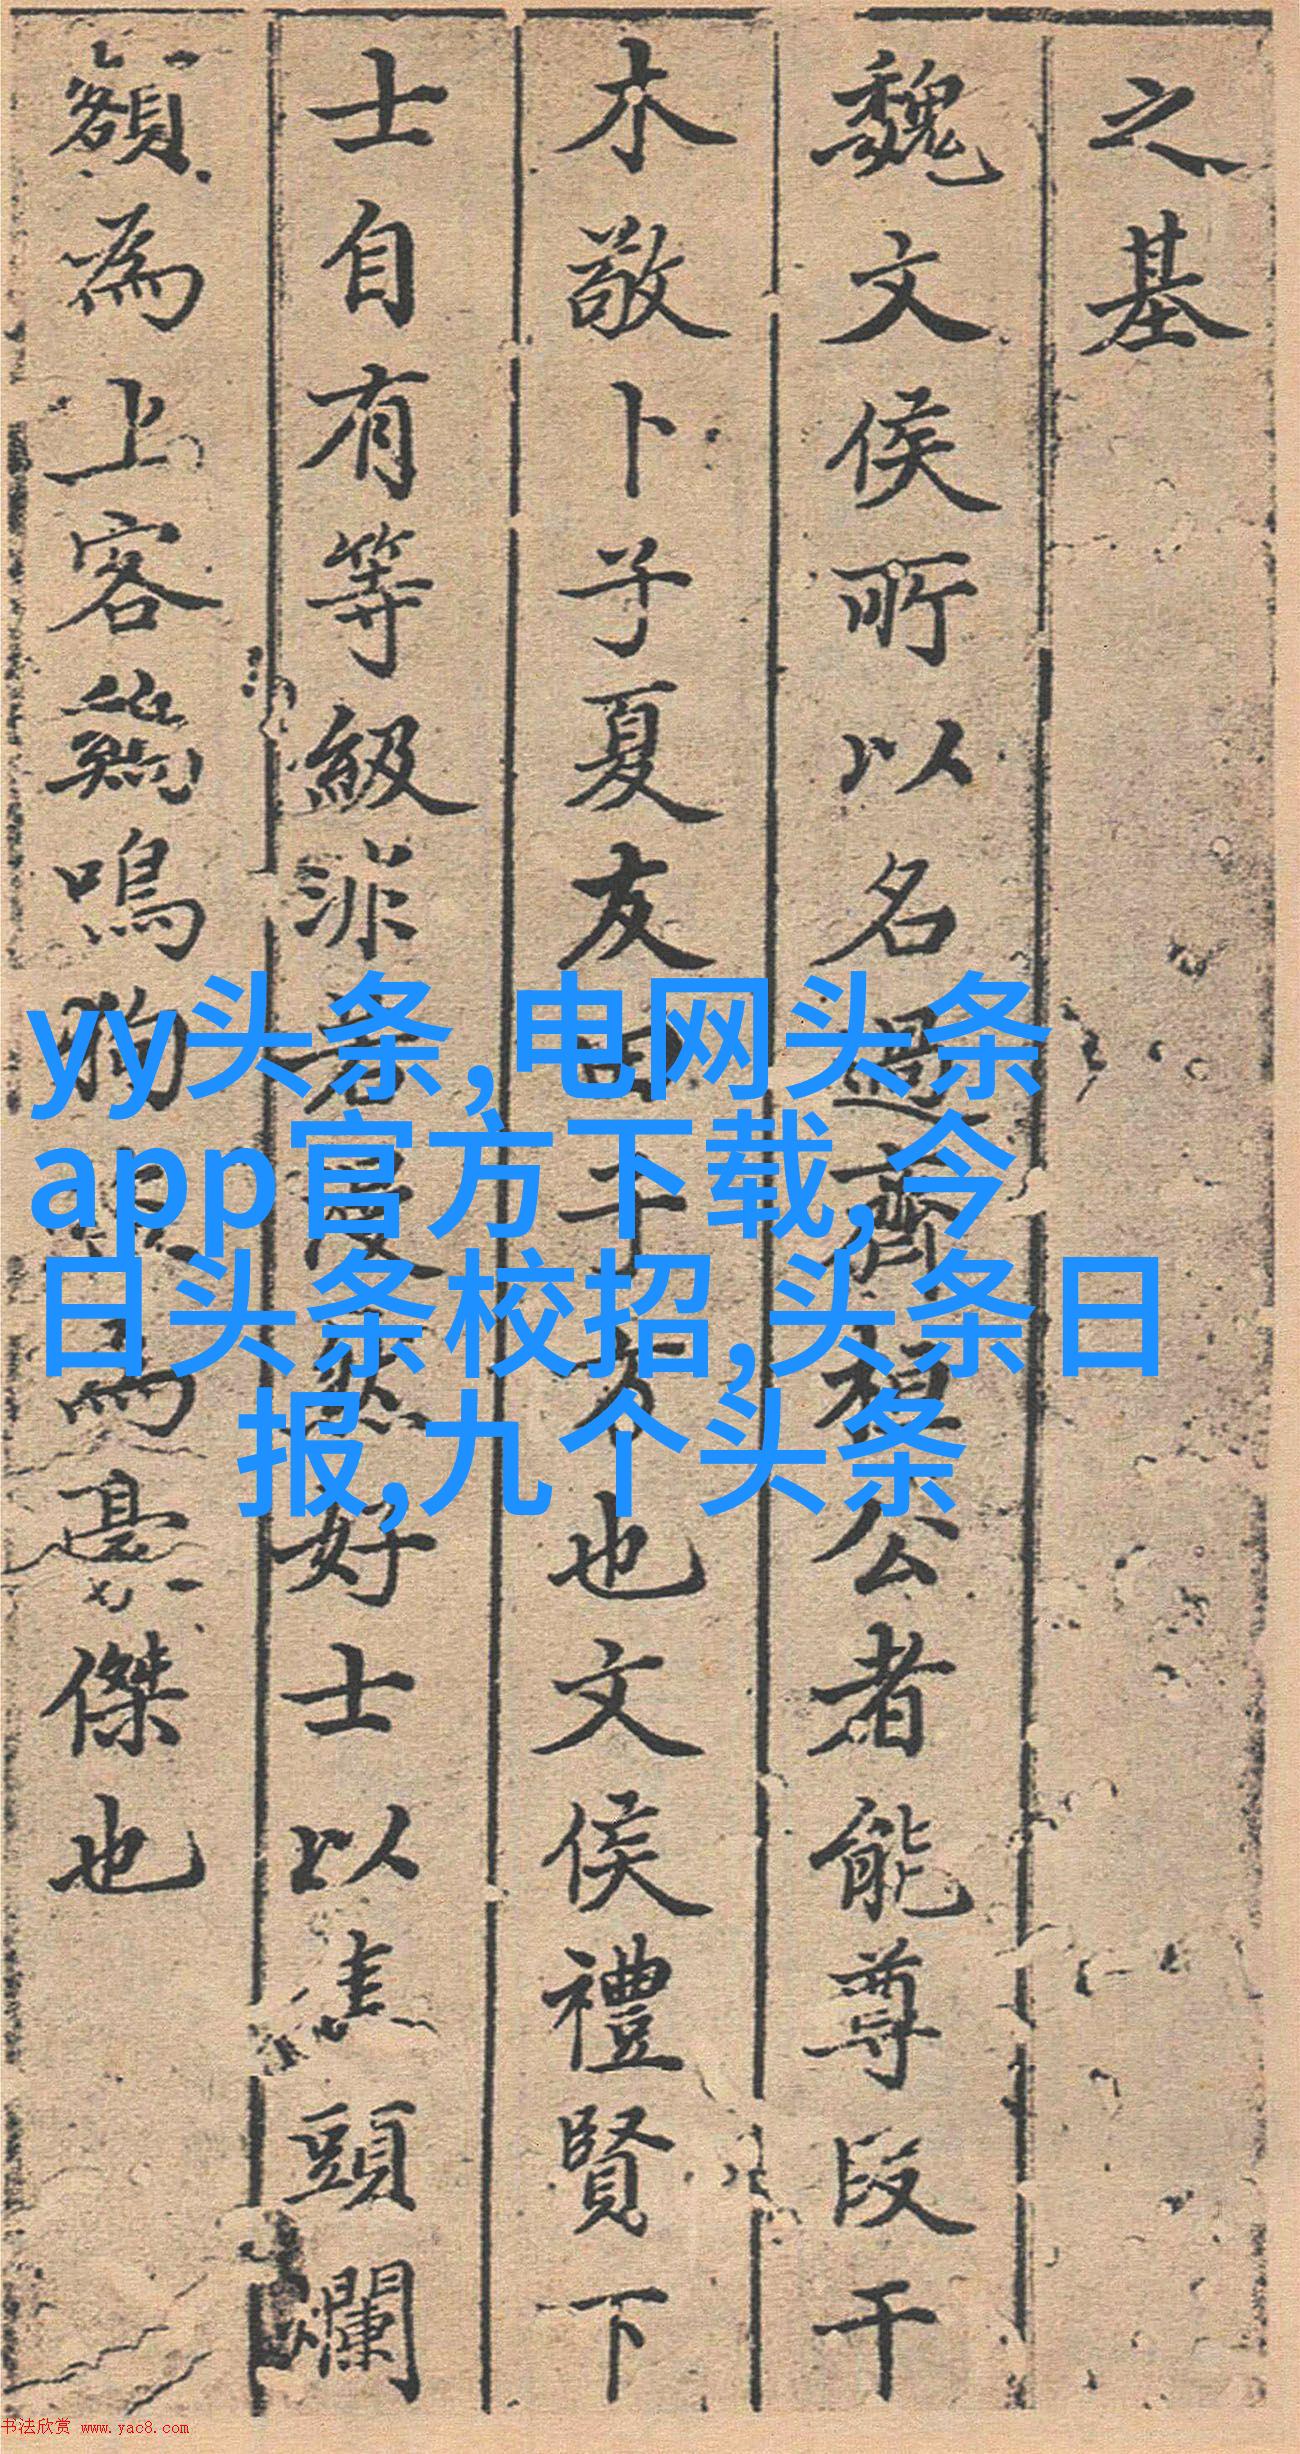 之基
魏文侯所以名過齊桓公者能尊段干
木敬卜子夏友田子方也文侯禮賢下
士自有等級非若漫然好士以焦頭爛
額為上客鷄鳴狗為豪傑也
yy头条,电网头条
app官方下载,今
日头条校招,头条日
报,九个头条
书法欣赏 www.yac8.com